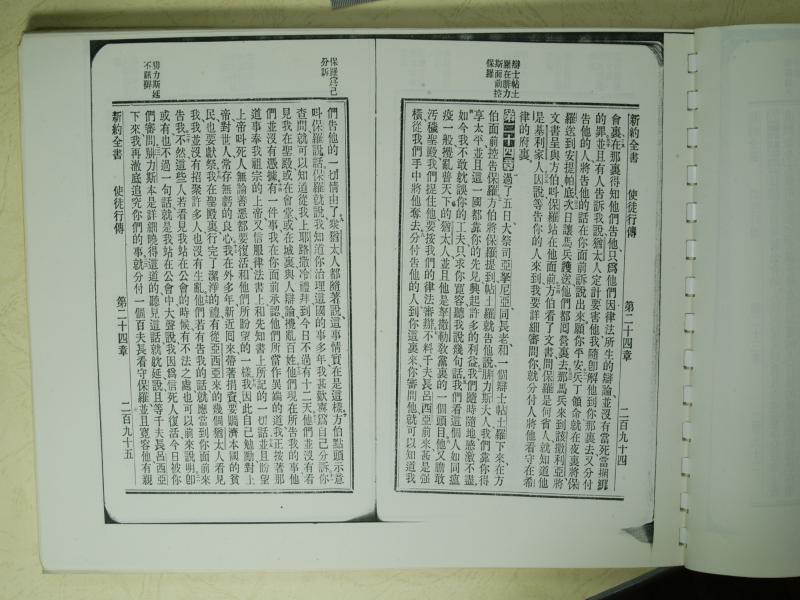 新約全書　使徒行傳　第二十四章　二百九十四
會裏在那裏得知他們告他只爲他們因律法所生的辯論並沒有當死當綑鎖
的罪並且有人告訴我說猶太人定計要害他我隨卽解他到你那裏去又分付
告他的人將告他的話在你面前訴說出來願你平安兵丁領命就在夜裏將保
羅送到安提帕底次日讓馬兵護送他們都囘營裏去那馬兵來到該撒利亞將
文書呈與方伯叫保羅站在他面前方伯看了文書問保羅是何省人就知道他
是基利家人因說等告你的人來到我要詳細審問你就分付人將他看守在希
律的府裏
第二十四章過了五日大祭司亞拏尼亞同長老和一個辯士帖土羅下來在方
伯面前控告保羅方伯將保羅提到帖土羅就告他說腓力斯大人我們靠你得
享太平並且這一國都靠你的先見興起許多的利益我們隨時隨地感激不盡
如今我不敢就誤你的工夫只求你寬容聽我說幾句話我們看這個人如同瘟
疫一般攪亂普天下的猶太人並且他是拏撒勒敎黨裏的一個頭目他又膽敢
汚穢聖殿我們捉住他要按我們的律法審辦不料千夫長呂西亞前來甚是强
橫從我們手中將他奪去分付告他的人到你這裏來你審問他就可以知道我
辯士帖土
羅在腓力
斯面前控
保羅
們告他的一切情由了衆猶太人都隨著說這事情實在是這樣方伯點頭示意
叫保羅說話保羅就說我知道你治理這國的事多年我甚歡喜爲自己分訴你
查問就可以知道從我上耶路撒冷禮拜到今日不過有十二天他們並沒有看
見我在聖殿或在會堂或在城裏與人辯論攪亂百姓他們現在所告我的事他
們並沒有憑據有一件事我在你面前承認他們所當作異端的道我正按著那
道事奉我祖宗的上帝又信服律法書上和先知書上所記的一切話並且盼望
上帝叫死人無論善惡都要復活和他們所盼望的一樣我因此自己勉勵對上
帝對世人常存無虧的良心我在外多年新近囘來帶著捐資要賙濟本國的貧
民也要獻祭我在聖殿裏行完了潔淨的禮有從亞西亞來的幾個猶太人看見
我我並沒有招聚許多人也沒有生亂他們若有告我的話就應當到你面前來
告我不然這些人若看見我站在公會的時候有不法之處也可以前來說明卽
或有也不過一句話就是我站在公會中大聲說我因爲信死人復活今日被你
們審問腓力斯本是詳細曉得這道的聽見這話就就延說且等千夫長呂西亞
下來我再澈底追究你們的事就分付一個百夫長看守保羅並且寬容他有親
新約全書　使徒行傳　第二十四章　二百九十五
保羅爲己
分訴
腓力斯延
不審辦